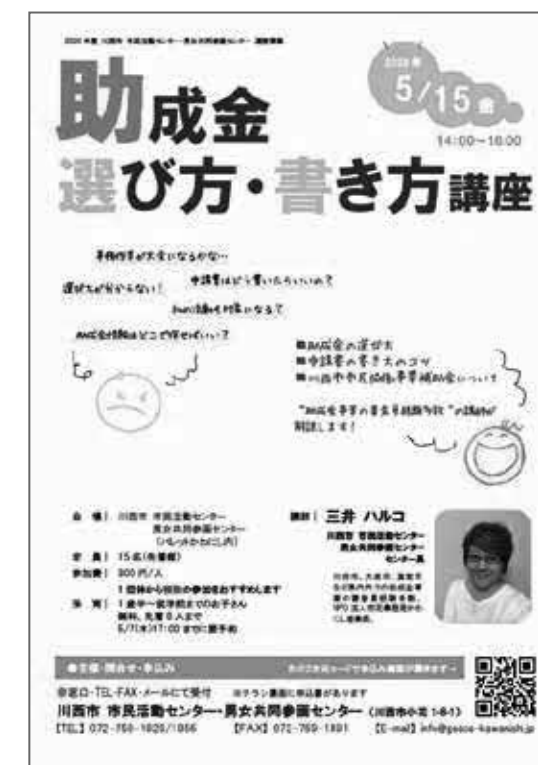 2020年度 川西市 市民活動センター・男女共同参画センター
2020年
5/15 金
14:00~16:00
助成金
選び方・書き方講座
事務作業が大変になるかな…
選び方が分からない!
申請書はどう書いたらいいの?
助成金情報はどこで探せばいい?
■助成金の選び方
■申請書の書き方のコツ
■川西市市民協働事業補助金について
解説します!
会 場| 川西市 市民活動センター
男女共同参画センター
(パレットかわにし内)
定 員| 15名(先着順)
参加費| 300円/人
1団体から複数の参加をおすすめします
保 育| 1歳半~就学前までのお子さん
無料、先着8人まで
5/7(木)17:00までに要予約
講師| 三井 ハルコ
川西市 市民活動センター
男女共同参画センター
センター長
●主催・問合せ・申込み
※窓口・TEL・FAX・メールにて受付 ※チラシ裏面に申込書があります
川西市 市民活動センター・男女共同参画センター (川西市小花 1-8-1)
【TEL】 072-759-1826/1856 【FAX】 072-759-1891 【E-mail】